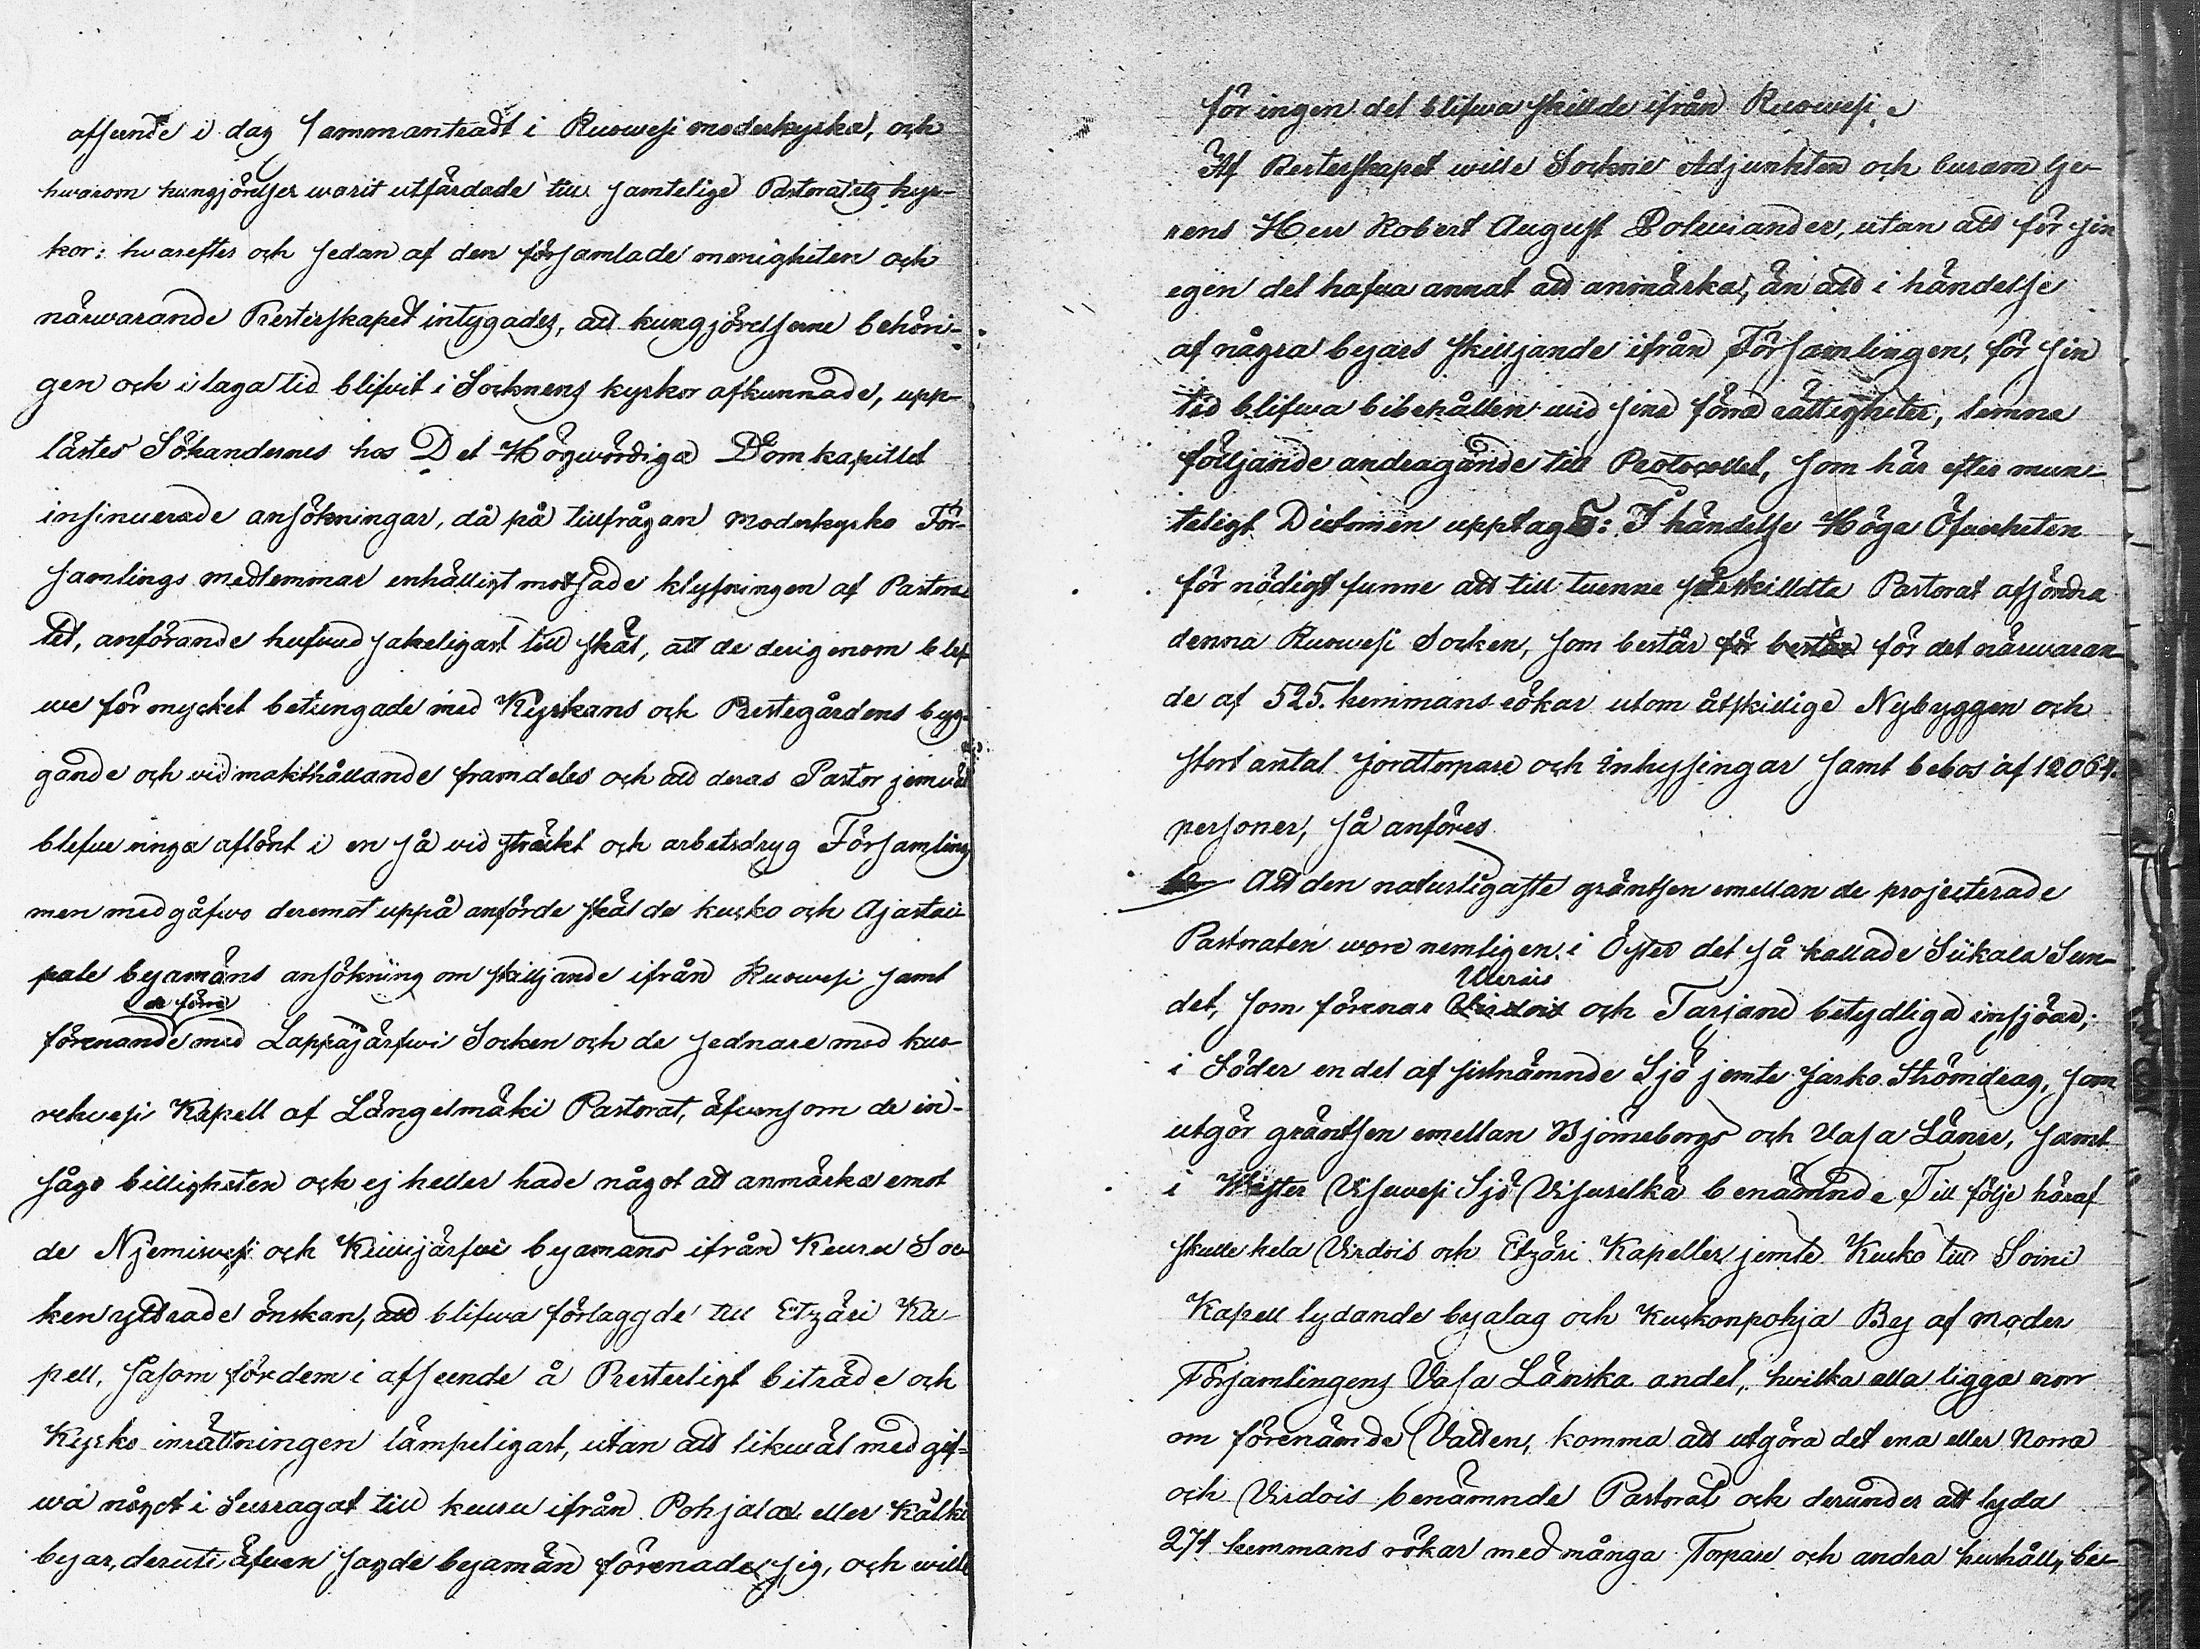 afseende i dag sammanträdt i Ruowesi moderkyrka, och
hwarom kungjörelser warit utfärdade till samtelige Pastoratets kyr-
kor: hwarefter och sedan af den församlade menigheten och
närwarande Presterskapet intygades, att kungjörelserne behöri-
gen och i laga tid blifvit i Socknens kyrkor afkunnade, upp-
lästes Sökandernes hos Det Högwördiga Domkapitlet
insinuerade ansökningar, då på tillfrågan moderkyrko För-
samlings medlemmar enhälligt motsade klyfningen af Pastora
tet, anförande hufvudsakeligast till skäl, att de derigenom blef
we för mycket betungade med Kyrkans och Prestegårdens byg-
gande och vidmakthållande framdeles och att deras Pastor jemväl
blefve ringa aflönt i en så vid sträckt och arbetsdryg Församling
men medgåfwo deremot uppå anförde skäl de kusko och Ajastai
pale byamäns ansökning om skilljande ifrån Ruowesi samt
de förra
förenande med Lappajärfwi Socken och de sednare med kuo
rehvesi Kapell af Längelmäki Pastorat, äfvensom de in-
sågo billigheten och ej heller hade något att anmärka emot
de Njemisvesi och Kiwijärfvi byamäns ifrån Keuru Soc
ken yttrade önskan, att blifwa förlaggde till Etzäri Ka-
pell, såsom för dem i afseende å Presterligt biträde och
Kyrko inrättningen lämpeligast, utan att likwäl medgif-
wa något i Surragat till keuru ifrån Pohjala eller Kälkä
byar, deruti äfven sagde byamän förenade sig, och wille
för ingen del blifwa skillde ifrån Ruowesi.
Af Presterskapet wille Sockne Adjunkten och curam ge-
rens Herr Robert August Polviander, utan att för sin
egen del hafva annat att anmärka, än att i händelse
af några byars skilljande ifrån Församlingen, för sin
tid blifwa bibehållen wid sina förra rättigheter, lemna
följjande andragande till Protocollet, som här efter mun-
teligt Dictamen upptages: I händelse Höga Öfwerheten
för nödigt funne att till tvenne särskillta Pastorat afsöndra
denna Ruowesi Socken, som består för består för det närwaran
de af 525. hemmans rökar utom åtskillige Nybyggen och
stort antal jordtorpare och Inhysingar samt bebos af 12064.
personer, så anföres
Att den naturligaste gräntsen emellan de projecterade
Pastoraten wore nemligen: i Öster det så kallade Siikala Sun-
Ulerois
det, som förenar Virdois och Tarjane betydliga insjöar;
i Söder en del af sistnämnde Sjö jemte Jarko Strömdrag, som
utgör gräntsen emellan Björneborgs och Vasa Läner, samt
i Wäster Visuvesi Sjö Visuselkä benämnde. Till följe häraf
skulle hela Virdois och Etzäri Kapeller jemte Kusko till Soini
Kapell lydande byalag och Kuskonpohja By af moder
Församlingens Vasa Länska andel, hvilka alla ligga norr
om förenämde Vatten, komma att utgöra det ena eller Norra
och Virdois benämnde Pastorat och derunder att lyda
274 hemmans rökar med många Torpare och andra hushåll, be-